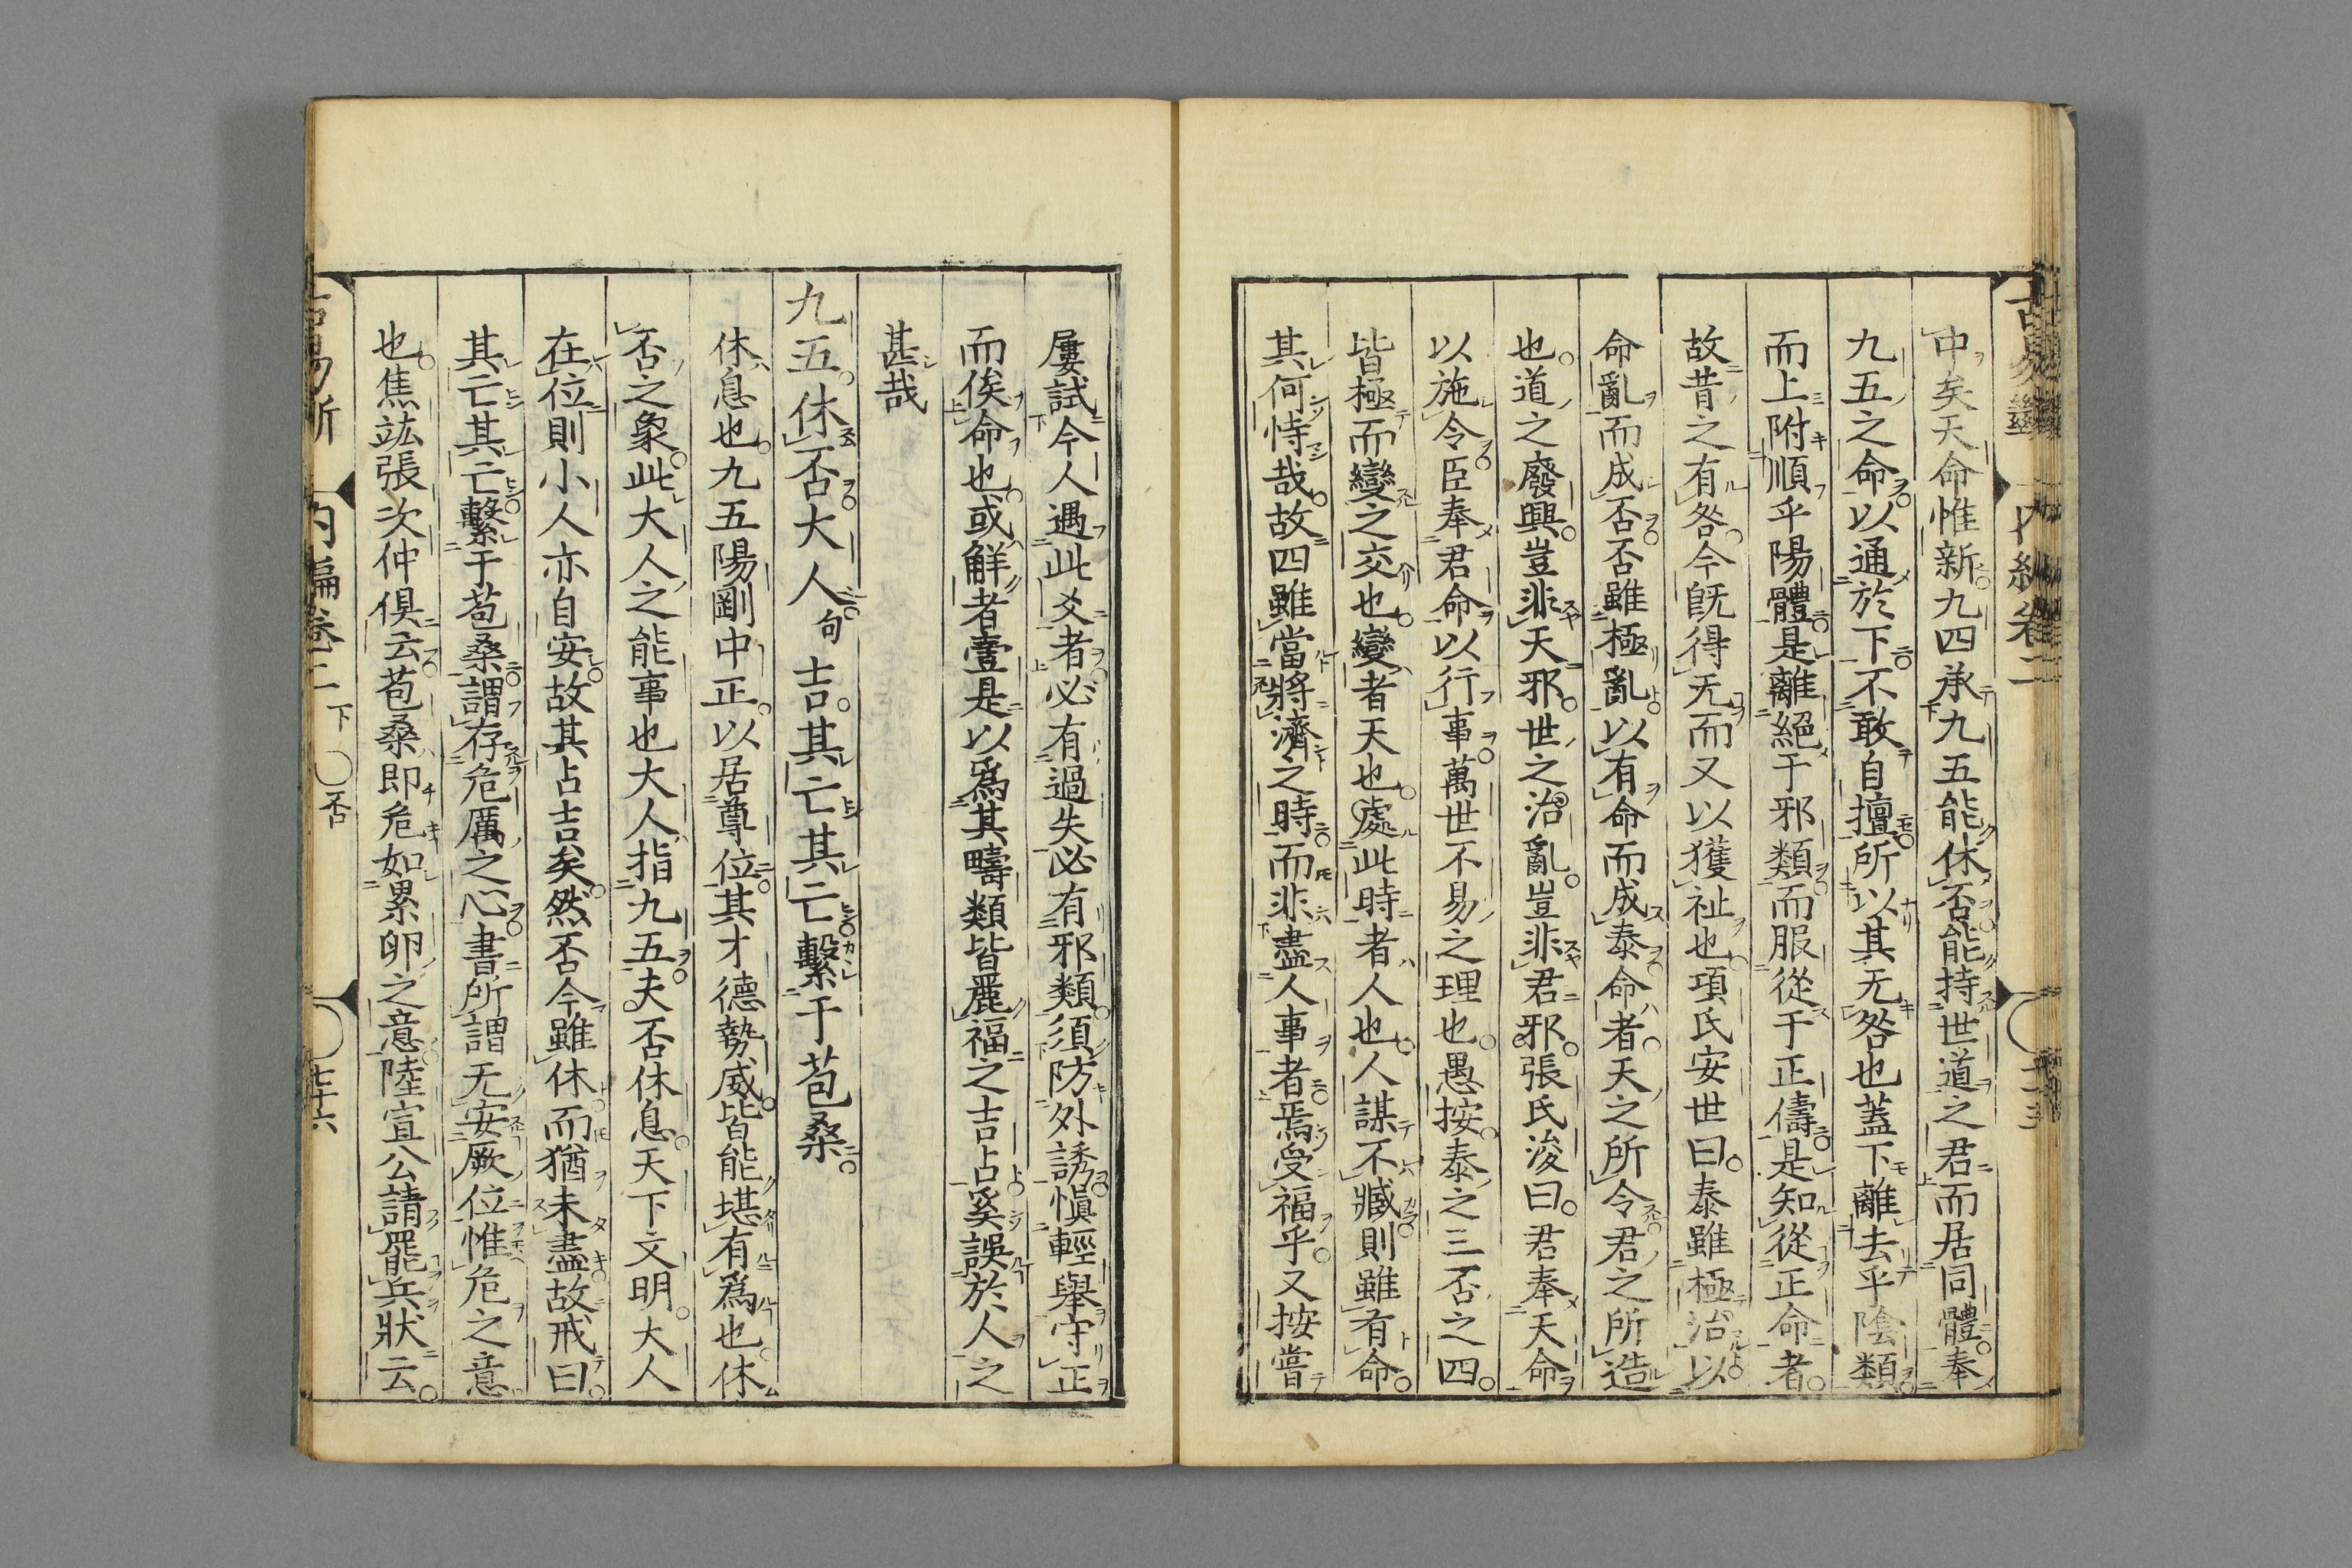 中矣天命惟新九四承九五能休否能持世道之君而居同體奉
九五之命以通於下不敢自擅所以其无咎也蓋下離去乎陰類
而上附順乎陽體是離絕于邪類而服從于正儔是知從正命者
故昔之有咎今既得无而又以獲祉也項氏安世曰泰雖極治以
命亂而成否否雖極亂以有命而成泰命者天之所令君之所造
也道之廢興豈非天邪世之治亂豈非君邪張氏浚曰君奉天命
以施令臣奉君命以行事萬世不易之理也愚按泰之三否之四
皆極而變之交也變者天也處此時者人也人謀不臧則雖有命
其何恃哉故四雖當將濟之時而非盡人事者焉受福乎又按嘗
屢試今人遇此爻者必有過失必有邪類須防外誘愼輕舉守正
而俟命也或鮮者壹是以爲其疇類皆麗福之吉占奚誤於人之
甚哉
九五休否大人句吉其亡其亡繫于苞桑
休息也九五陽剛中正以居尊位其才德勢威皆能堪有爲也休
否之象此大人之能事也大人指九五夫否休息天下文明大人
在位則小人亦自安故其占吉矣然否今雖休而猶未盡故戒曰
其亡其亡繫于苞桑謂存危厲之心書所謂无安厥位惟危之意
也焦竑張次仲俱云苞桑即危如累卵之意陸宣公請罷兵狀云
内編卷二下 否 七十六